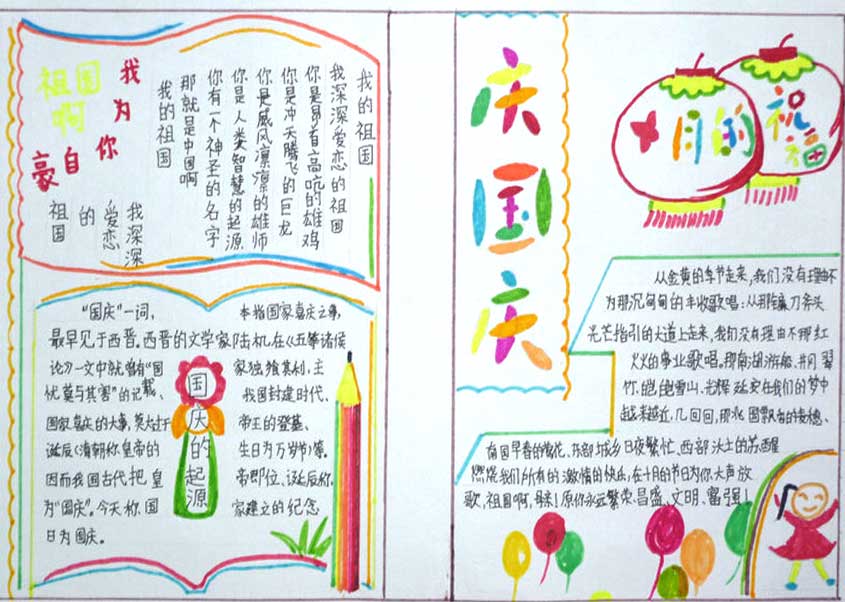 祖国
啊
我为你自豪
我的祖国
我深深爱恋的祖国
你是昂首高吭的雄鸡
你是冲天腾飞的巨龙
你是威风凛凛的雄师
你是人类智慧的起源
你有一个神圣的名字
那就是中国啊
我的祖国
我深深
爱恋
的
祖国
"国庆"一词, 本指国家喜庆之事,
最早见于西晋。西晋的文学家陆机在《五等诸侯
论》一文中就曾有"国 家独飨其利,主
忧莫与其害"的记载、 我国封建时代、
国家喜庆的大事,莫大过于 帝王的登基、
诞辰(清朝称皇帝的 生日为万岁节)等。
因而我国古代把皇 帝即位、诞辰称
为"国庆"。今天称国 家建立的纪念
日为国庆。
国庆的起源
庆国庆
十月的
祝福
从金黄的季节走来,我们没有理由不
为那沉甸甸的丰收歌唱:从那镰刀斧头
光芒指引的大道上走来,我们没有理由不那红
火火的事业歌唱。那南湖游船、井冈翠
竹、皑皑雪山、光辉延安在我们的梦中
越来越近,几回回,那
南国早春的 花、东部城乡日夜繁忙、西部沃土的苏醒
燃烧我们所有的激情的快乐,在十月的节日为你大声放
歌,祖国啊,母亲!原你永远繁荣、昌盛、文明、富强!